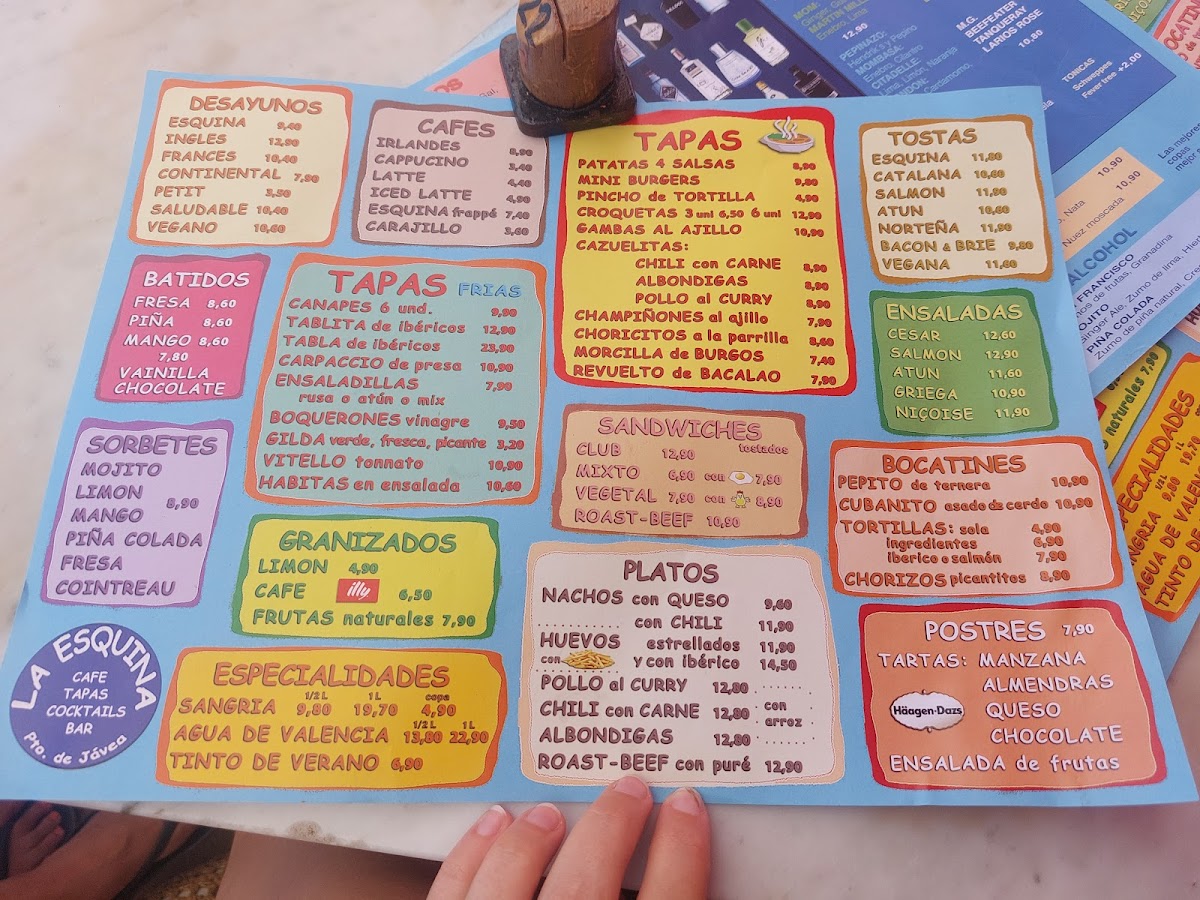 DESAYUNOS
ESQUINA 9,40
INGLES 12,90
FRANCES 10,40
CONTINENTAL 7,90
PETIT 3,50
SALUDABLE 10,40
VEGANO 10,60
CAFES
IRLANDES 8,90
CAPPUCINO 3,40
LATTE 4,40
ICED LATTE 4,90
ESQUINA frappé 7,40
CARAJILLO 3,60
TAPAS
PATATAS 4 SALSAS 8,90
MINI BURGERS 9,80
PINCHO de TORTILLA 4,90
CROQUETAS 3 uni 6,50 6 uni 12,90
GAMBAS AL AJILLO 10,90
CAZUELITAS:
CHILI con CARNE 8,90
ALBONDIGAS 8,90
POLLO al CURRY 8,90
CHAMPIÑONES al ajillo 7,90
CHORICITOS a la parrilla 8,60
MORCILLA de BURGOS 7,40
REVUELTO de BACALAO 7,90
TOSTAS
ESQUINA 11,80
CATALANA 10,60
SALMON 11,80
ATUN 10,60
NORTEÑA 11,90
BACON & BRIE 9,80
VEGANA 11,60
BATIDOS
FRESA 8,60
PIÑA 8,60
MANGO 8,60
7,80
VAINILLA
CHOCOLATE
TAPAS FRIAS
CANAPES 6 und. 9,90
TABLITA de ibéricos 12,90
TABLA de ibéricos 23,90
CARPACCIO de presa 10,90
ENSALADILLAS 7,90
rusa o atún o mix
BOQUERONES vinagre 9,50
GILDA verde, fresca, picante 3,20
VITELLO tonnato 10,90
HABITAS en ensalada 10,60
ENSALADAS
CESAR 12,60
SALMON 12,90
ATUN 11,60
GRIEGA 10,90
NIÇOISE 11,90
SORBETES
MOJITO
LIMON
8,90
MANGO
PIÑA COLADA
FRESA
COINTREAU
SANDWICHES
tostados
CLUB 12,90
MIXTO 6,90 con 7,90
VEGETAL 7,90 con 8,90
ROAST-BEEF 10,90
BOCATINES
PEPITO de ternera 10,90
CUBANITO asado de cerdo 10,90
TORTILLAS: sola 4,90
ingredientes 6,90
iberico o salmón 7,90
CHORIZOS picantitos 8,90
GRANIZADOS
LIMON 4,90
CAFE illy 6,50
FRUTAS naturales 7,90
PLATOS
NACHOS con QUESO 9,60
............... con CHILI 11,90
HUEVOS estrellados 11,90
con y con ibérico 14,50
POLLO al CURRY 12,80
CHILI con CARNE 12,80
con arroz
ALBONDIGAS 12,80
ROAST-BEEF con puré 12,90
POSTRES 7,90
TARTAS: MANZANA
ALMENDRAS
Häagen-Dazs QUESO
CHOCOLATE
ENSALADA de frutas
LA ESQUINA
CAFE
TAPAS
COCKTAILS
BAR
Pto. de Jávea
ESPECIALIDADES
1/2 L 1 L copa
SANGRIA 9,80 19,70 4,90
1/2 L 1 L
AGUA DE VALENCIA 13,80 22,90
TINTO DE VERANO 6,90
12,90
PEPINAZO:
Hendrik's y Pepino
MOMBASA:
CITADELLE:
M.G.
BEEFEATER
TANQUERAY
LARIOS ROSE
10,80
TONICAS
Schweppes
Fever tree +2.00
10,90
, Nata 10,90
Nuez moscada
Las mejores
copas
mejor
ALCOHOL
FRANCISCO
de frutas, Granadina
MOJITO
Ginger Ale, Zumo de lima
PIÑA COLADA
Zumo de piña natural
naturales 7,90